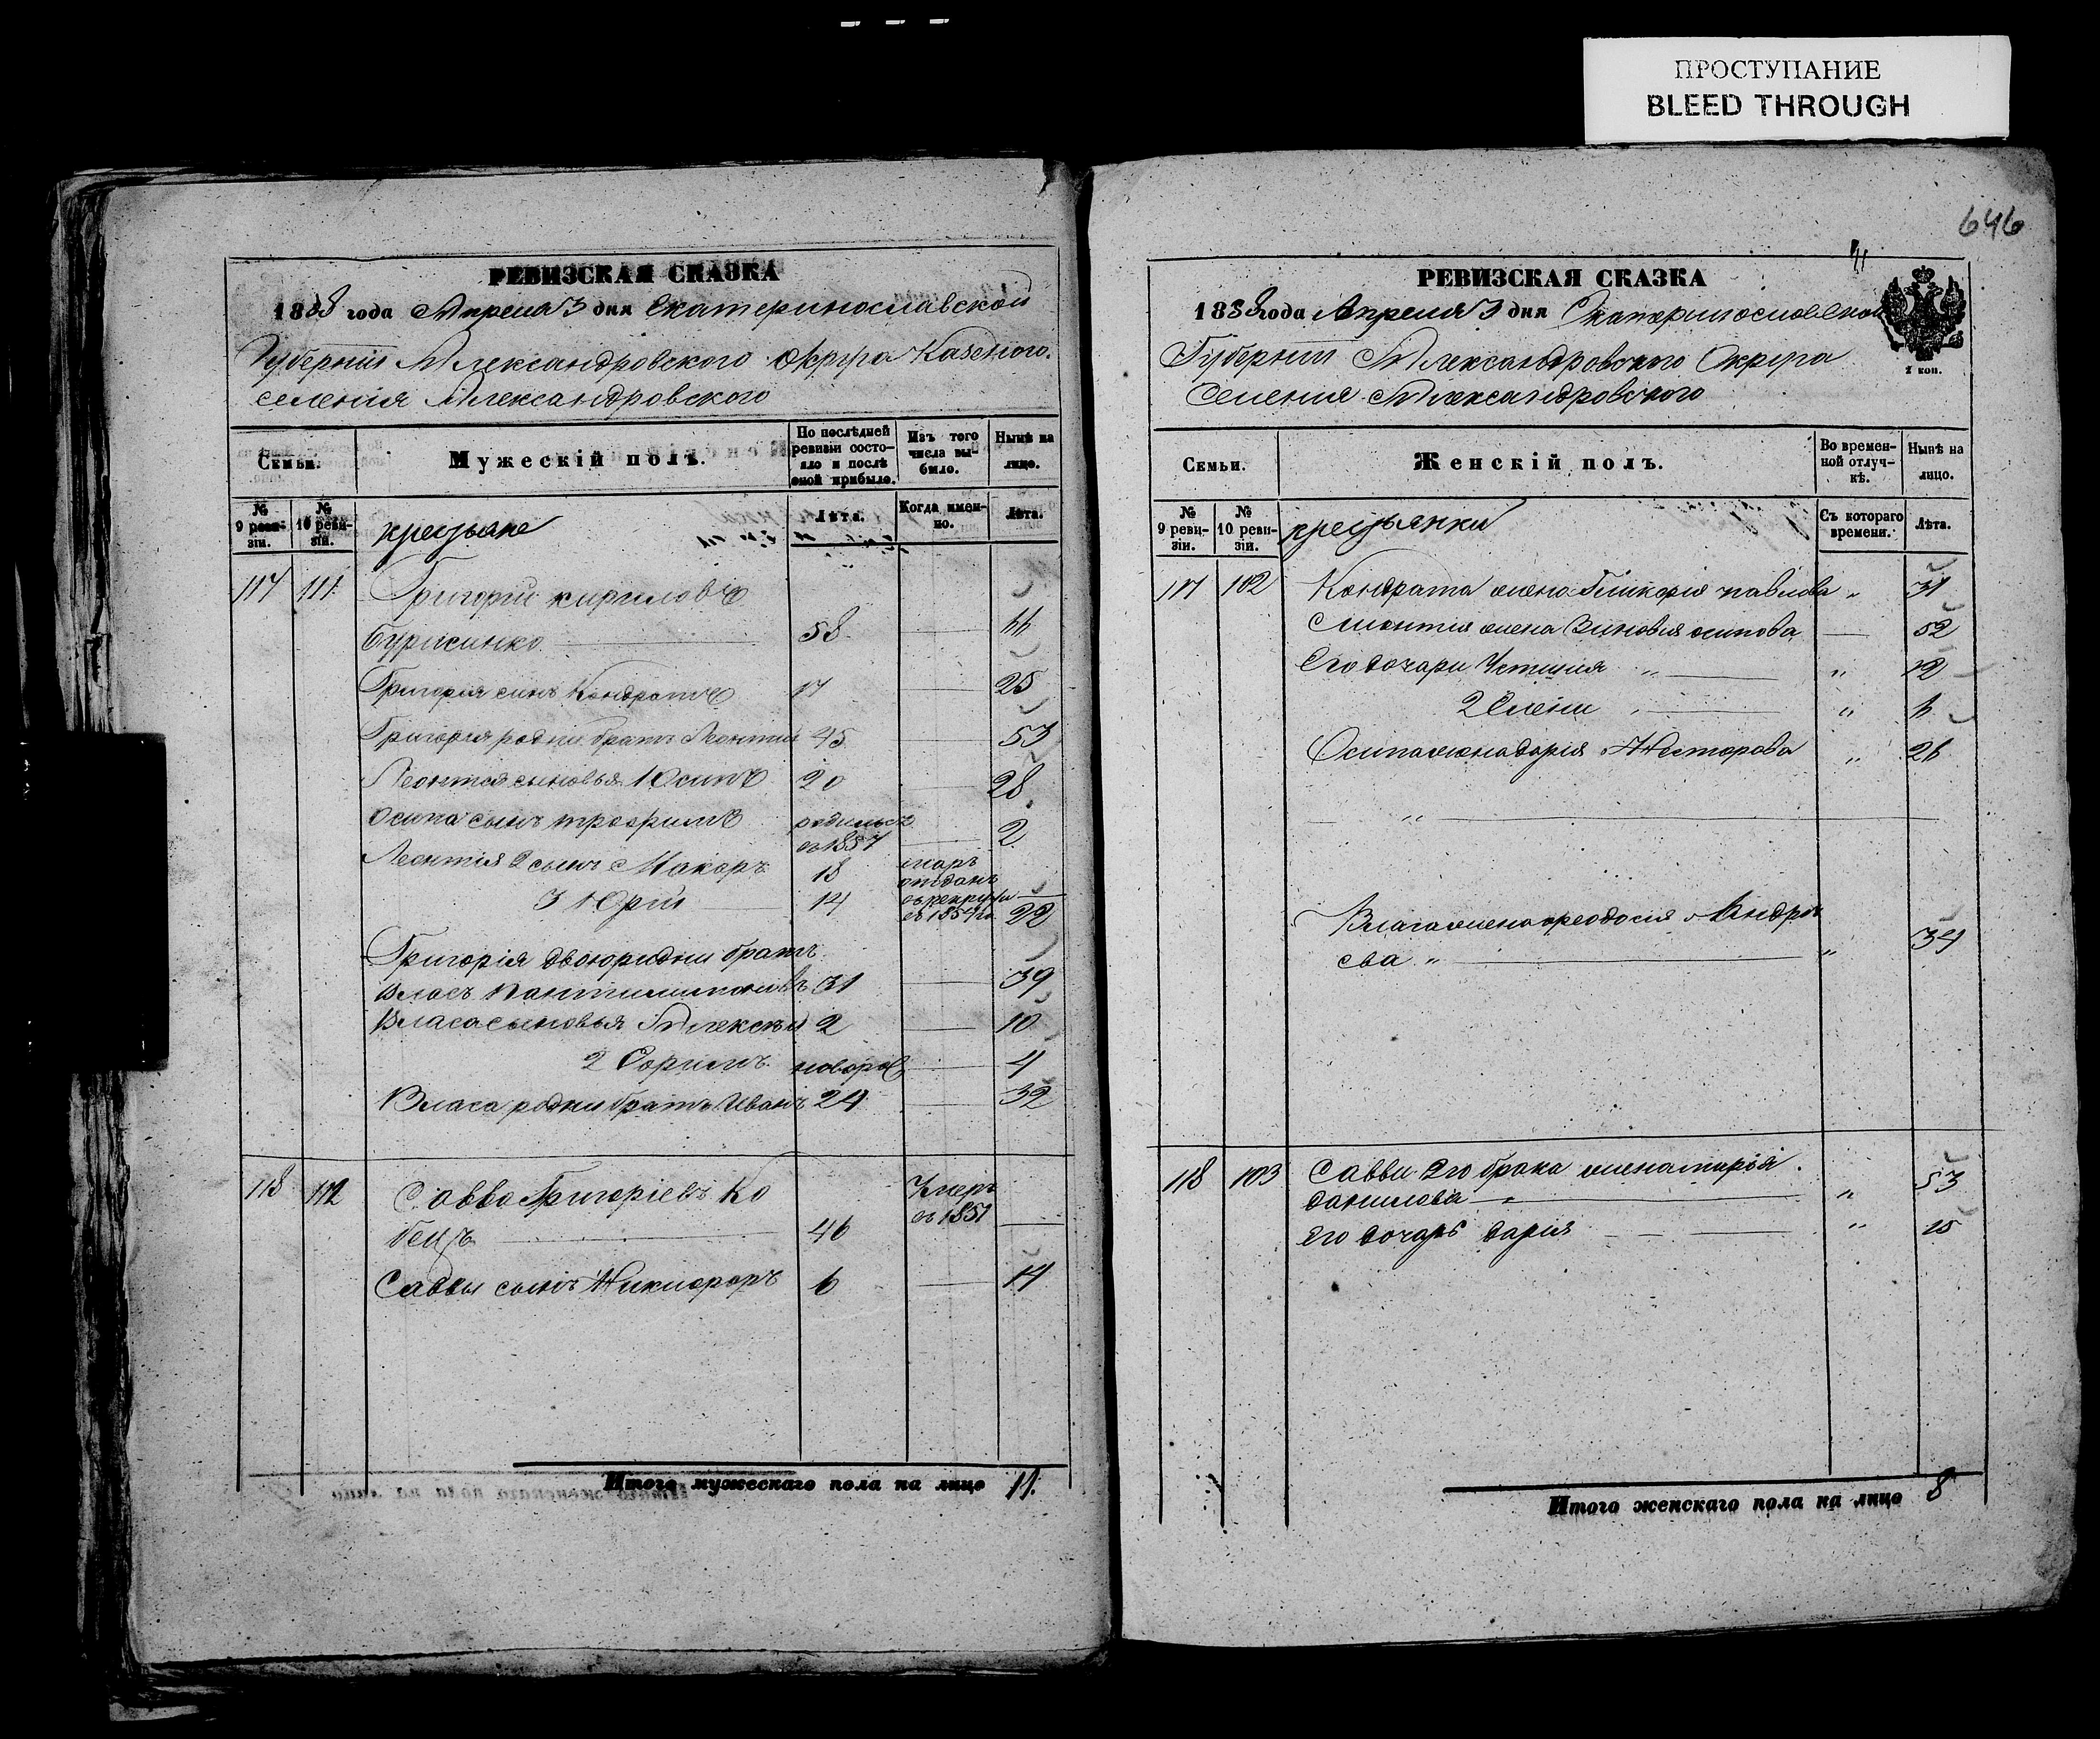 ПРОСТУПАНИЕ
BLEED THROUGH
646
РЕВИЗСКАЯ СКАЗКА
1858 года Апреля 3 дня Екатеринославской
Губерніи Александровского Округа Казеного
селенія Александровского
Семьи.
Мужескій полъ.
По послѣдней ревизіи состояло и послѣ оной прибыло.
Изъ того числа выбыло.
Нынѣ на лицо.
№ 9 ревизіи.
№ 10 ревизіи.
крестьяне
Лѣта.
Когда именно.
Лѣта.
117 111 Григорій кириловъ
58 66
Григорія синъ Кондратъ 17 25
Григорія родни братъ Леонтій 45 53
Леонтія сыновья 1 Осипъ 20 28
Осипа сынъ трофимъ родильса въ 1857 2
Леонтія 2 сынъ Макаръ 18 отданъ въ рекруты въ 1854 го
3 Юрій 14 22
Григорія двоюридни братъ
Власъ Пантилимоновъ 31 39
Власа сыновья Алексѣй 2 10
2 Єфимъ новорож 4
Власа родни братъ Иванъ 24 32
118 112 Савва Григоріевъ Ко
бецъ 46 Умеръ въ 1851
Саввы сынъ Никифоръ 6 14
Итого мужескаго пола на лицо 11.
РЕВИЗСКАЯ СКАЗКА
1858 года Апреля 3 дня Екатеринославской
Губерніи Александровского Округа
Селения Александровского
1 коп.
Семьи.
Женскій полъ.
Во временной отлучкѣ.
Нынѣ на лицо.
№ 9 ревизіи.
№ 10 ревизіи.
крестьянки
Съ котораго времени.
Лѣта.
117 102 Кондрата жена Гликерія павлова „ 31
жена Зиновія осипова 52
Его дочари Устиния „ „ 12
2 Єлени „ „ 6
Осипа жена дарія Нестерова „ 26
„
Власа жена феодосия Андре
ева „ „ 34
118 103 Саввы 2го брака жена марія
данилова „ „ 53
Его дочарь дария „ 15
Итого женскаго пола на лицо 8